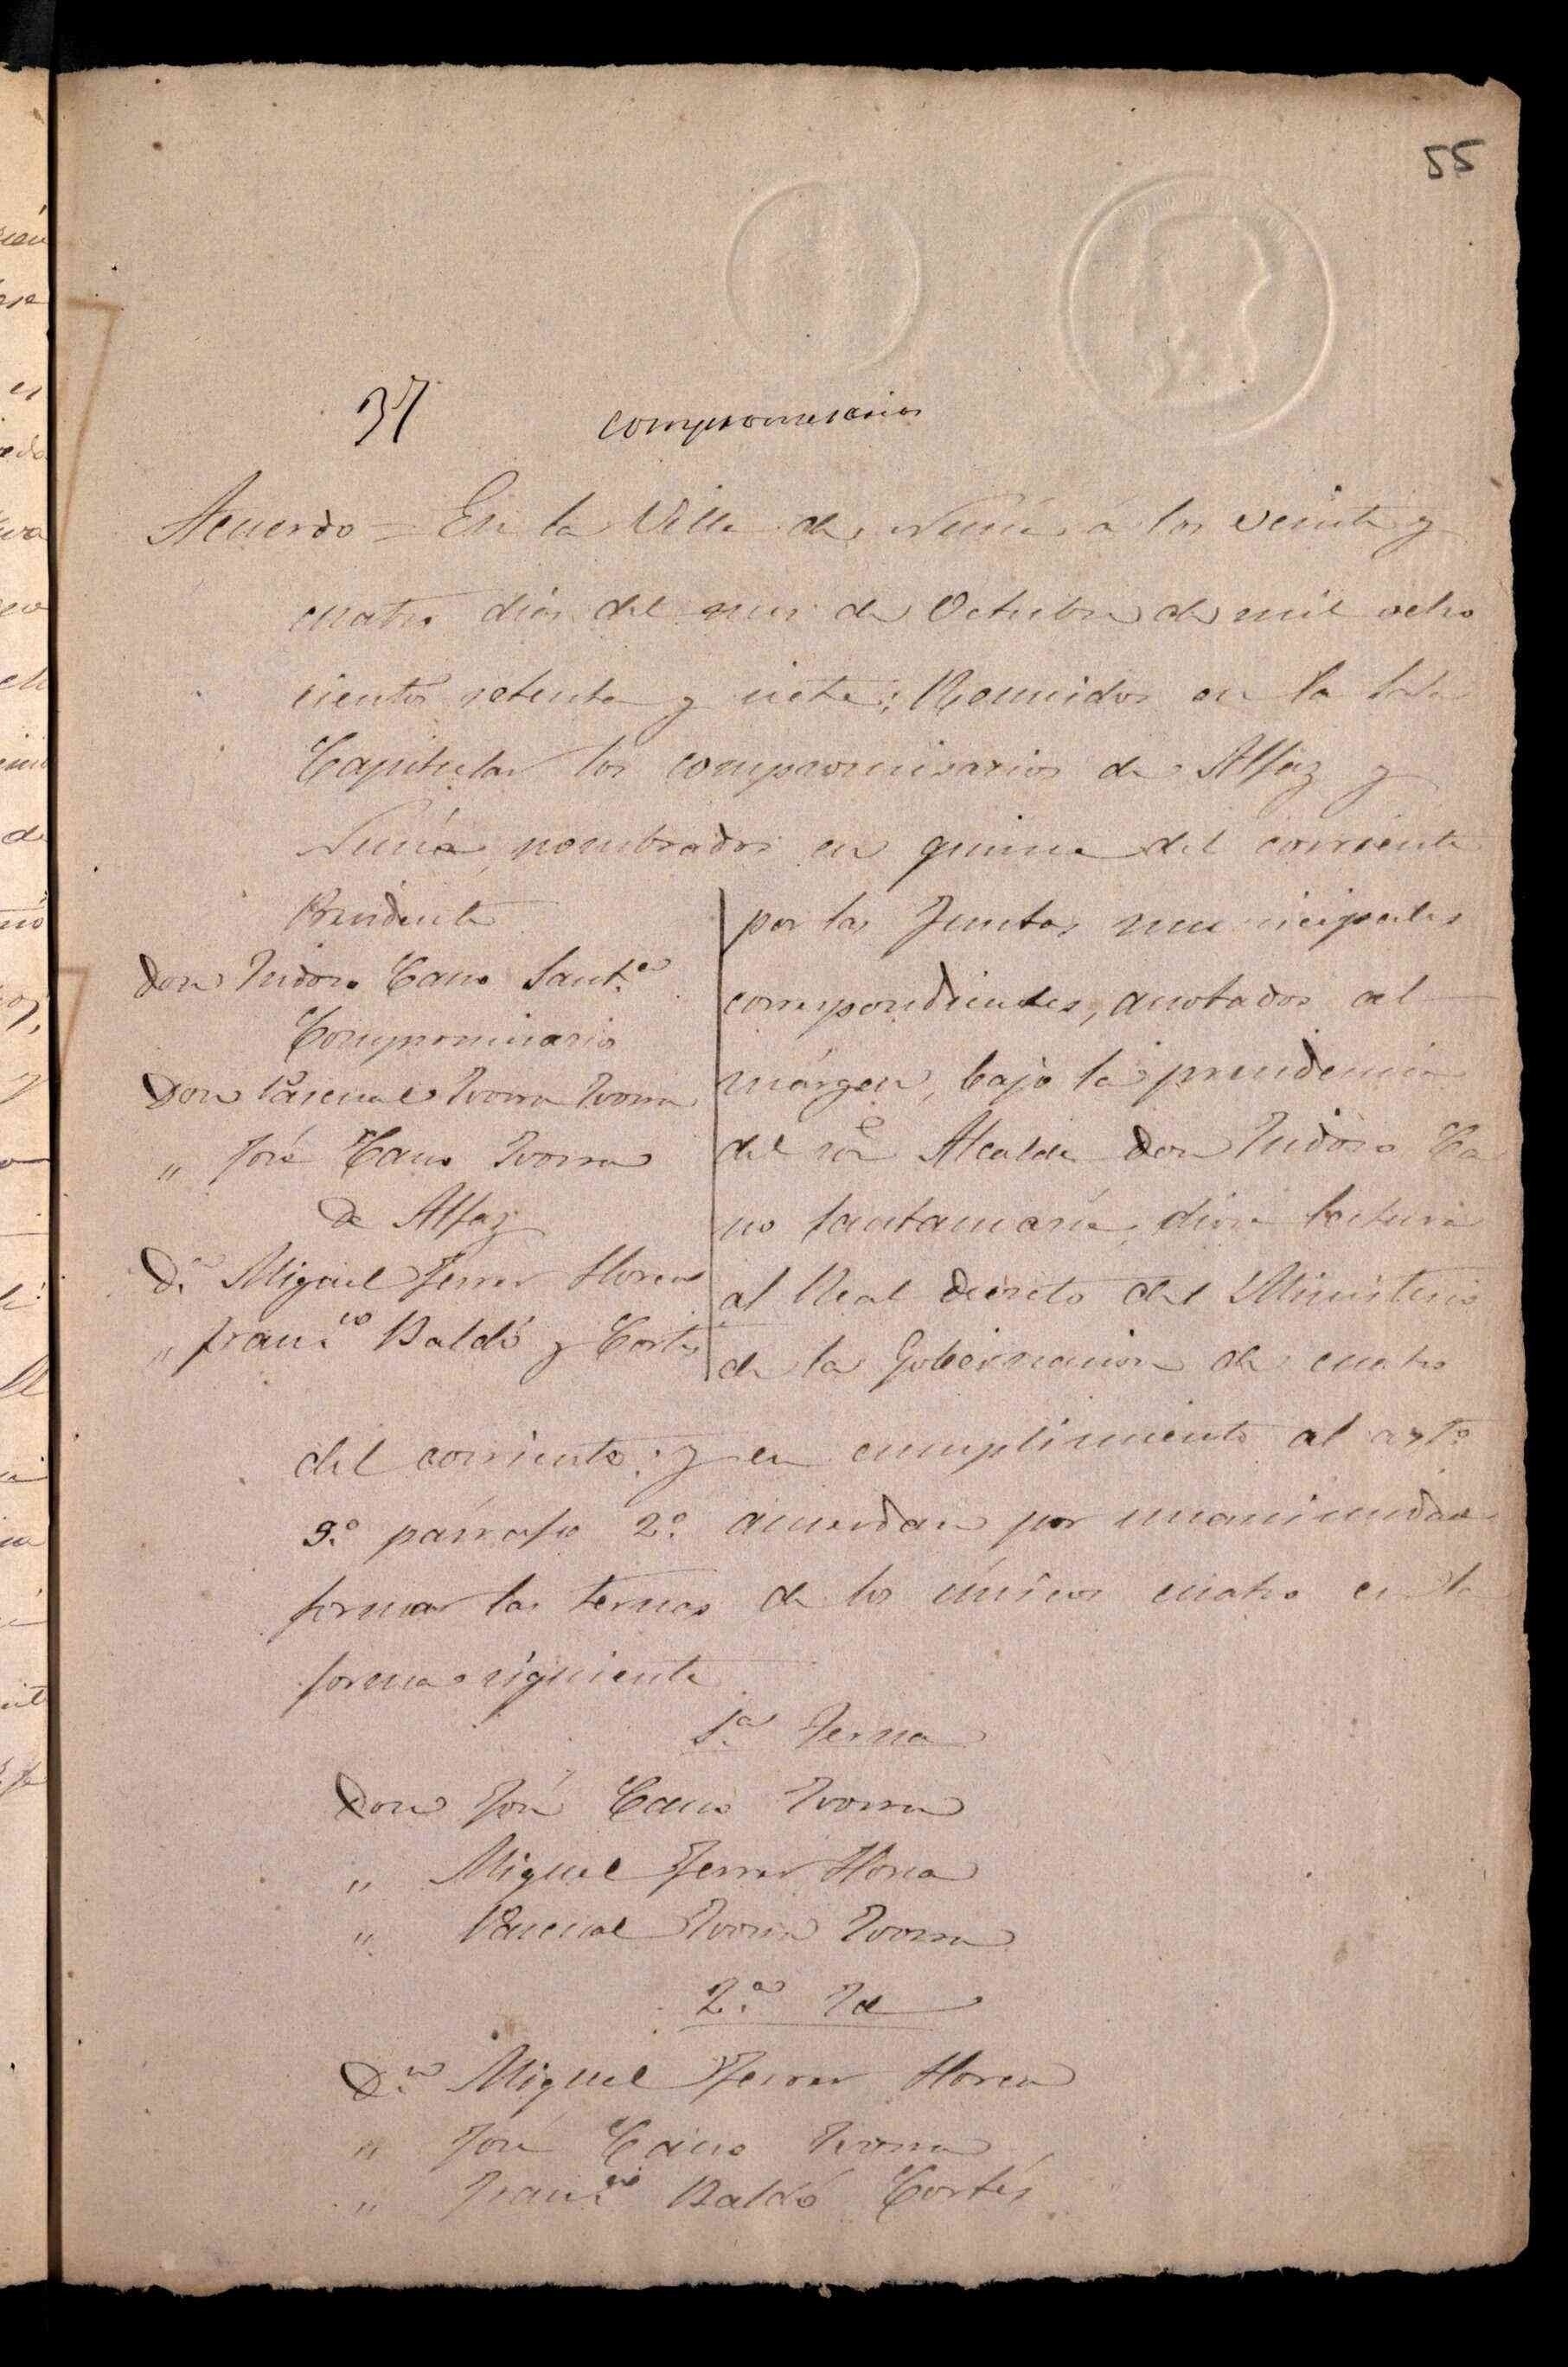 55
37 compromisarios
Acuerdo = En la Villa de Nucía á los veinte y
cuatro dias del mes de Octubre de mil ocho
cientos setenta y siete; Reunidos en la Sala
Capitular los compromisarios de Alfaz y
Nucía, nombrados en quince del corriente
Presidente
Don Isidoro Cano Sant.ª
Compromisarios
Don Pascual Ivorra Ivorra
" José Cano Ivorra
de Alfaz
D.n Miguel Ferrer Llorens
" Fran.co Baldó y Cortés
por las Juntas municipales
correspondientes, anotados al
márgen, bajo la presidencia
del Sör Alcalde Don Isidoro Ca
no Santamaría, dióse lectura
al Real decreto del Ministerio
de la Gobernacion de cuatro
del corriente: y en cumplimiento al art.º
9.º párrafo 2.º acuerdan por unanimidad
formar las ternas de los únicos cuatro en la
forma siguiente
1.ª Terna
Don José Cano Ivorra
" Miguel Ferrer Llorens
" Pascual Ivorra Ivorra
2.ª Id
D.n Miguel Ferrer Llorens
" José Cano Ivorra
" Fran.co Baldó Cortés